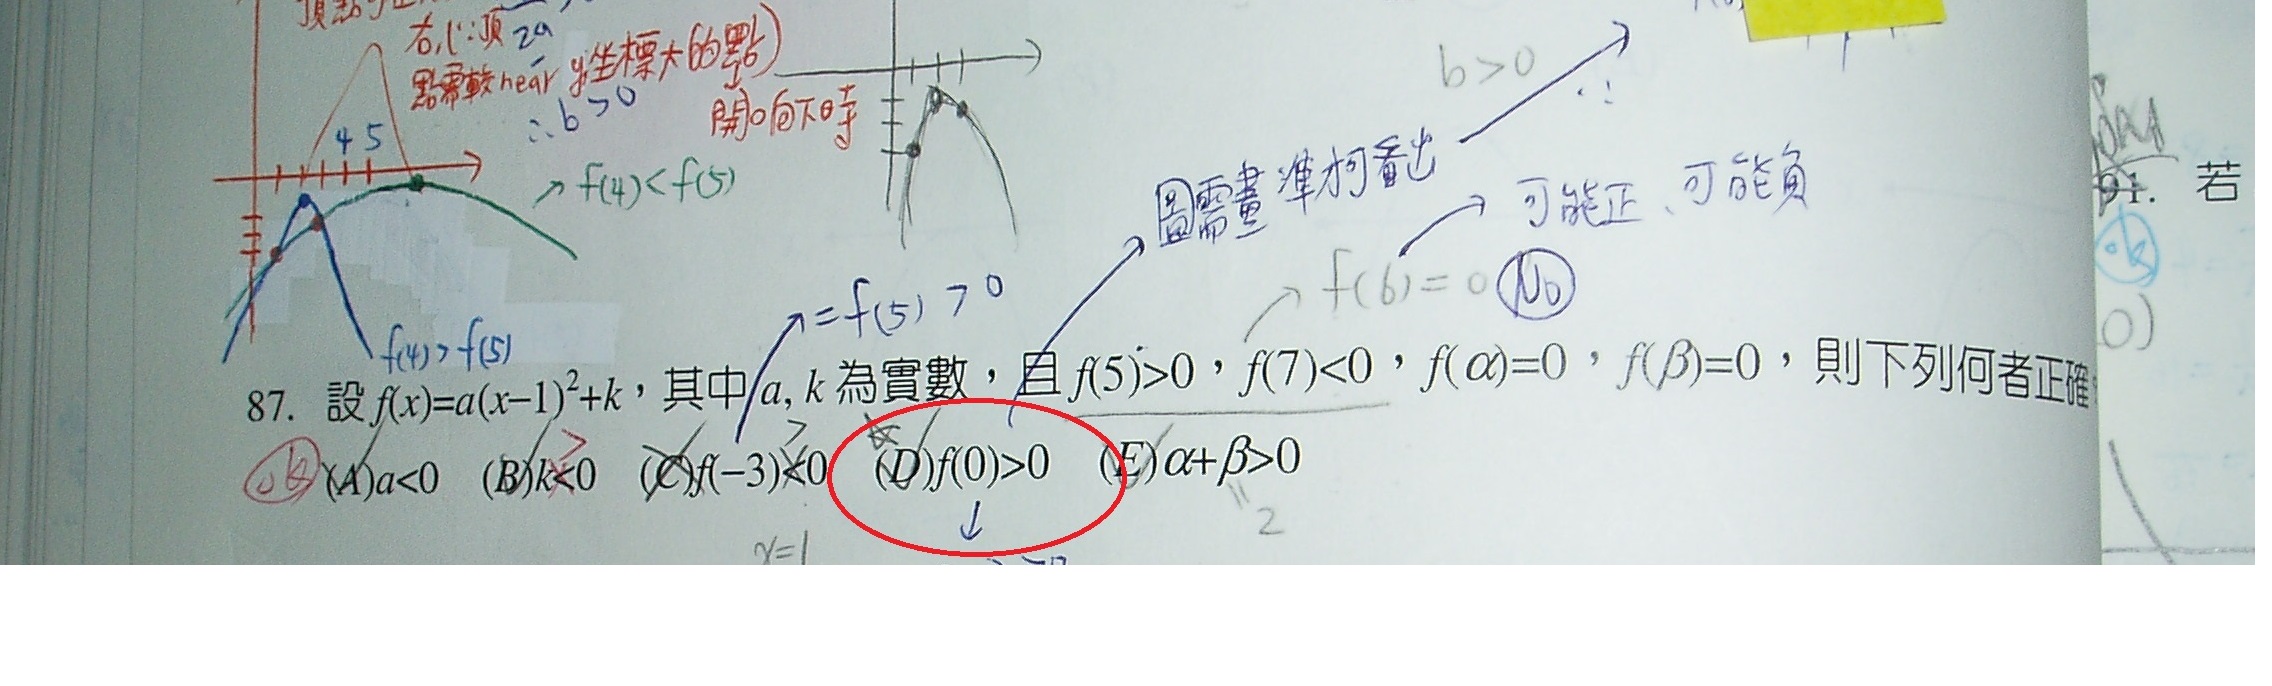 右,心:頂 2a
點需較near y坐標大的點)
∴b>0
開口向下時
4 5
↗ f(4)<f(5)
f(4)>f(5)
b>0
∴
圖需畫準柯看出
可能正、可能負
f(6)=0 No
=f(5)>0
87. 設 f(x)=a(x−1)²+k,其中 a, k 為實數,且 f(5)>0,f(7)<0,f(α)=0,f(β)=0,則下列何者正確
ok (A)a<0 (B)k<0 (C)f(−3)<0 (D)f(0)>0 (E)α+β>0
> >
=2
x=1
91. 若
ok
0)